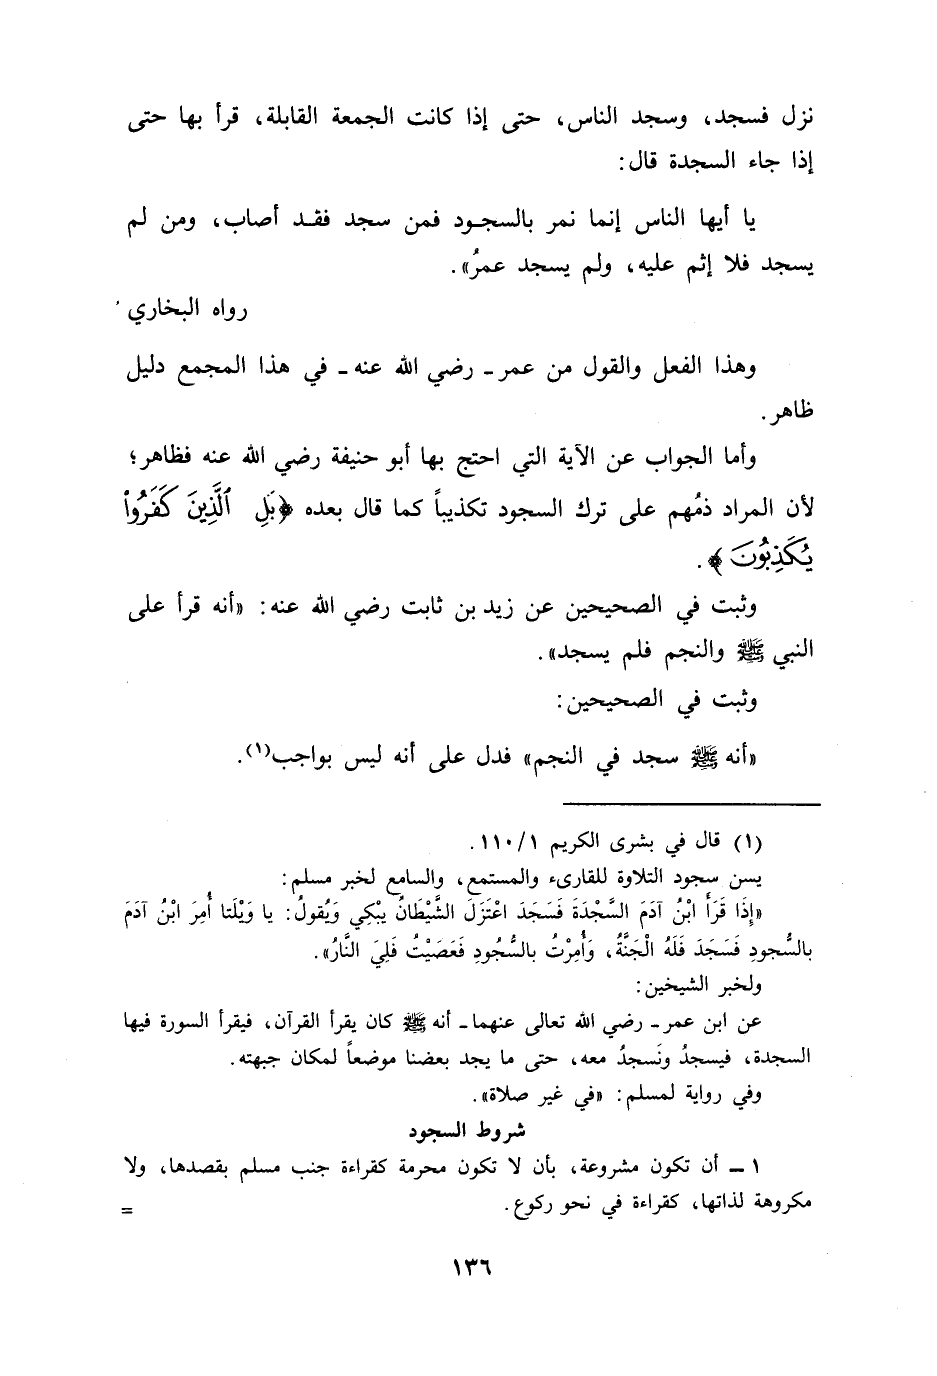 نزل فسجد، وسجد الناس، حتى إذا كانت الجمعة القابلة، قرأ بها حتى
إذا جاء السجدة قال:
يا أيها الناس إنما نمر بالسجود فمن سجد فقد أصاب، ومن لم
يسجد فلا إثم عليه، ولم يسجد عمرُ».
رواه البخاري
وهذا الفعل والقول من عمر ـ رضي الله عنه ـ في هذا المجمع دليل
ظاهر.
وأما الجواب عن الآية التي احتج بها أبو حنيفة رضي الله عنه فظاهر؛
لأن المراد ذمُهم على ترك السجود تكذيباً كما قال بعده ﴿بَلِ ٱلَّذِينَ كَفَرُواْ
يُكَذِبُونَ﴾.
وثبت في الصحيحين عن زيد بن ثابت رضي الله عنه: «أنه قرأ على
النبي ﷺ والنجم فلم يسجد».
وثبت في الصحيحين:
«أنه ﷺ سجد في النجم» فدل على أنه ليس بواجب(١).
(١) قال في بشرى الكريم ١١٠/١.
يسن سجود التلاوة للقارىء والمستمع، والسامع لخبر مسلم:
«إِذَا قَرَأَ ابْنُ آدَمَ السَّجْدَةَ فَسَجَدَ اعْتَزَلَ الشَّيْطَانُ يَبْكِي وَيُقولُ: يا وَيْلَتا أُمِرَ ابْنُ آدَمَ
بالسُّجودِ فَسَجَدَ فَلَهُ الْجَنَّةُ، وَأُمِرْتُ بالسُّجُودِ فَعَصَيْتُ فَلِيَ النَّارُ».
ولخبر الشيخين:
عن ابن عمر ـ رضي الله تعالى عنهما ـ أنه ﷺ كان يقرأ القرآن، فيقرأ السورة فيها
السجدة، فيسجدُ ونَسجدُ معه، حتى ما يجد بعضنا موضعاً لمكان جبهته.
وفي رواية لمسلم: «في غير صلاة».
شروط السجود
١ ـ أن تكون مشروعة، بأن لا تكون محرمة كقراءة جنب مسلم بقصدها، ولا
مكروهة لذاتها، كقراءة في نحو ركوع. =
١٣٦